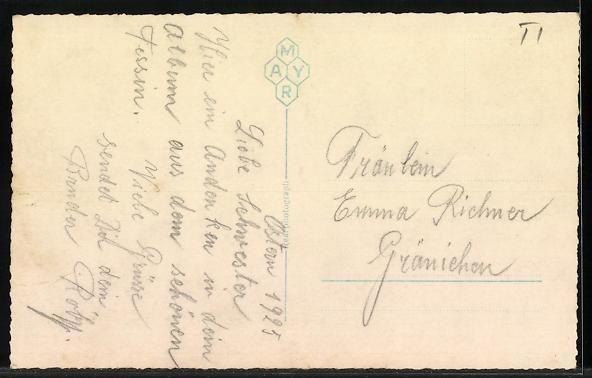 Ostern 1925
Liebe Schwester
Hier ein Andenken in dein
Album aus dem schönen
Tessin.
Viele Grüsse
sendet Dir dein
Bruder
MAYR
Fräulein
Emma Richner
Gränichen
TI